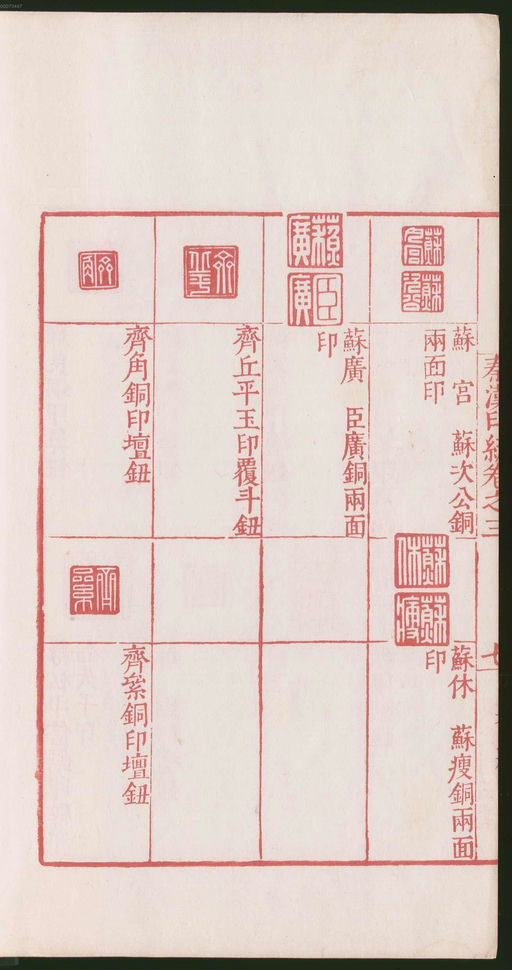 00073447
秦漢印統卷之三
七
蘇宮　蘇次公銅
兩面印
蘇廣　臣廣銅兩面
印
齊丘平玉印覆斗鈕
齊角銅印壇鈕
蘇休　蘇瘦銅兩面
印
齊纍銅印壇鈕